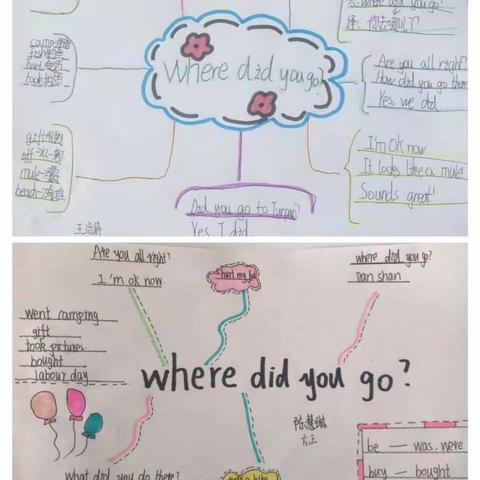 where did you go?
译: 你去哪儿了?
camp
fish
hurt
took
Where did you go?
Are you all right?
How did you go there
Yes we did.
gift
off
mule
beach
I'm ok now
It looks like a mule
Sounds great!
Did you go to Turpan?
Yes I did.
Are you all right?
I'm ok now.
I hurt my foot
where did you go?
Tian shan
went camping
gift
took pictures
bought
labour day
where did you go?
陈慧
六三
be — was. were
buy — bought
what did you do there?